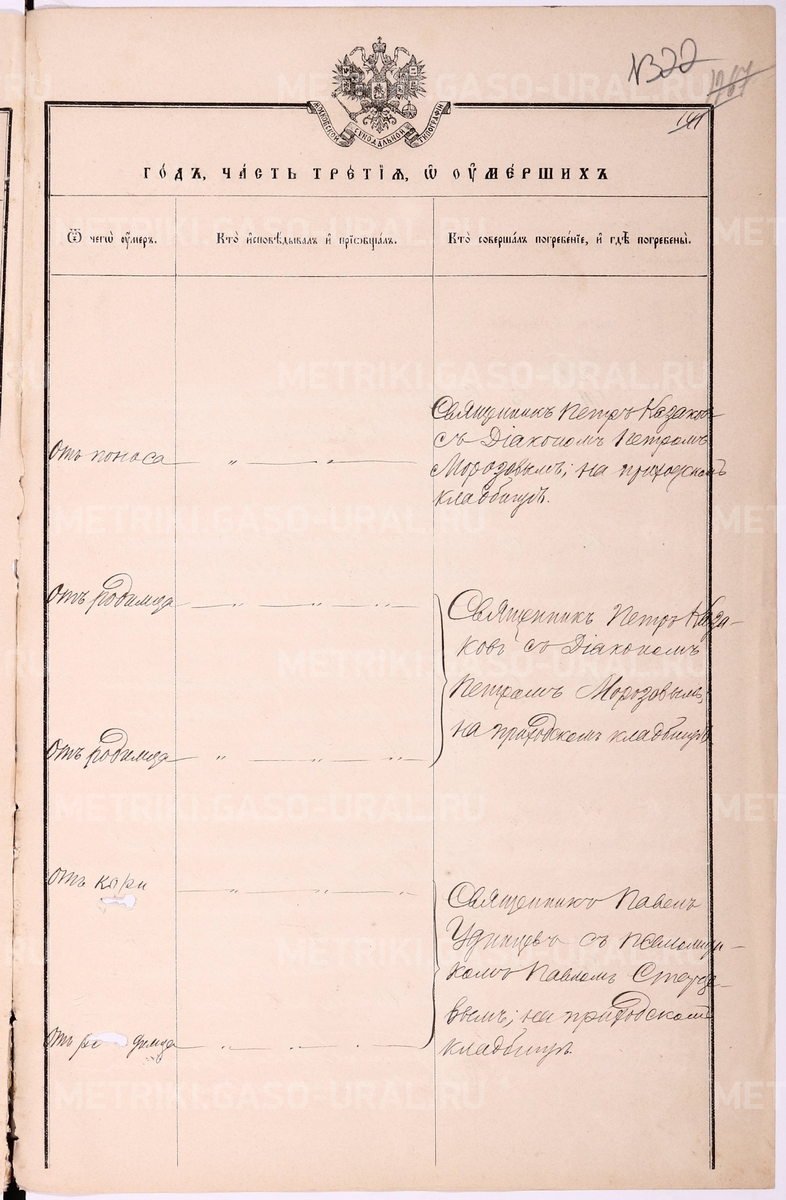 №22
141
МОСКОВСКОЙ СѴНОДАЛЬНОЙ ТИПОГРАФІИ
ГО́ДЪ, ЧА́СТЬ ТРЕ́ТІѦ, Ѽ ОУ҆МЕ́РШИХЪ
Ѿ чегѡ̀ оу҆́меръ.
Кто̀ и҆сповѣ́дывалъ и҆ прїѡбща́лъ.
Кто̀ соверша́лъ погребе́нїе, и҆ гдѣ̀ погребены̀.
отъ поноса
Священникъ Петръ Казаковъ
съ Діакономъ Петромъ
Морозовымъ; на приходскомъ
кладбищѣ.
отъ родимца
отъ родимца
Священникъ Петръ Каза-
ковъ съ Діакономъ
Петромъ Морозовымъ;
на приходскомъ кладбищѣ
отъ кори
отъ родимца
Священникъ Павелъ
Удинцевъ съ псаломщи-
комъ Павломъ
вымъ; на приходскомъ
кладбищѣ.
METRIKI.GASO-URAL.RU